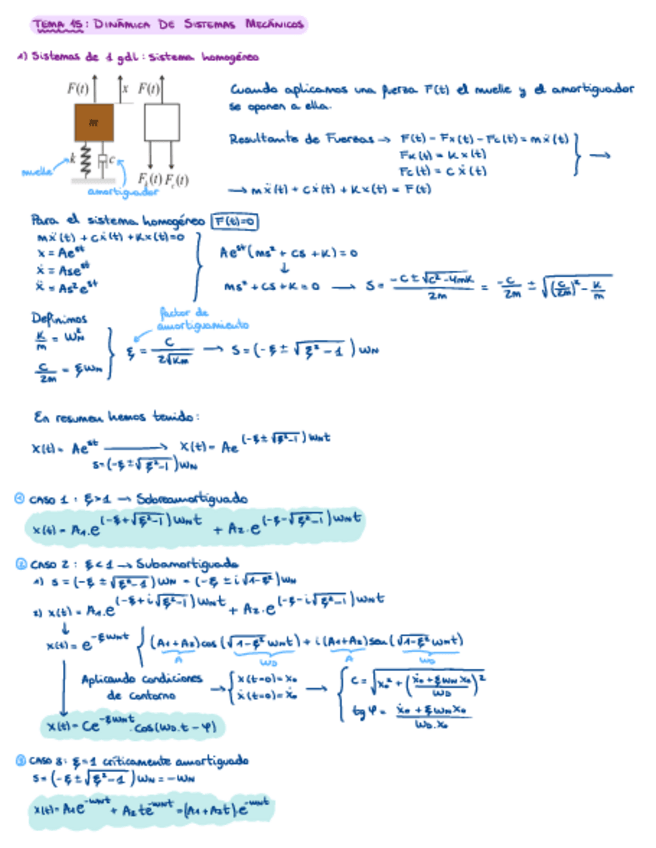 TEMA 15: DINÁMICA DE SISTEMAS MECÁNICOS
1) Sistemas de 1 gdl: Sistema homogéneo
F(t) x F(t)
m
k c
muelle
amortiguador
F_k(t) F_c(t)
Cuando aplicamos una fuerza F(t) el muelle y el amortiguador
se oponen a ella.
Resultante de Fuerzas → F(t) - Fk(t) - Fc(t) = mẍ(t)
Fk(t) = Kx(t)
Fc(t) = Cẋ(t)
→ mẍ(t) + Cẋ(t) + Kx(t) = F(t)
Para el sistema homogéneo F(t)=0
mẍ(t) + cẋ(t) + Kx(t)=0
x = Ae^st
ẋ = Ase^st
ẍ = As²e^st
Ae^st (ms² + cs + K) = 0
↓
ms² + cs + K = 0 → S = (-C ± √(C² - 4mK)) / 2m = -C/2m ± √((C/2m)² - K/m)
Definimos
K/m = W_N²
C/2m = ξW_N
factor de
amortiguamiento
ξ = C / 2√Km → S = (-ξ ± √(ξ² - 1)) W_N
En resumen hemos tenido:
X(t) = Ae^st → X(t) = Ae^(-ξ ± √(ξ²-1))W_N t
S=(-ξ ± √(ξ²-1))W_N
① CASO 1: ξ>1 → Sobreamortiguado
x(t) = A₁.e^(-ξ+√(ξ²-1))W_N t + A₂.e^(-ξ-√(ξ²-1))W_N t
② CASO 2: ξ<1 → Subamortiguado
1) S = (-ξ ± √(ξ²-1)) W_N = (-ξ ± i√(1-ξ²))W_N
2) x(t) = A₁.e^(-ξ+i√(ξ²-1))W_N t + A₂.e^(-ξ-i√(ξ²-1))W_N t
↓
x(t) = e^-ξW_N t { (A₁+A₂)cos(√(1-ξ²) W_N t) + i(A₁+A₂)sen(√(1-ξ²) W_N t)
A W_D A W_D
Aplicando condiciones
de contorno
→ { x(t=0)=x₀
ẋ(t=0)=ẋ₀
→ { C = √(x₀² + ((ẋ₀ + ξW_N x₀)/W_D)²)
tg φ = (ẋ₀ + ξW_N x₀) / (W_D.x₀)
x(t) = Ce^-ξW_N t . cos(W_D.t - φ)
③ CASO 3: ξ=1 críticamente amortiguado
S = (-ξ ± √(ξ²-1)) W_N = -W_N
x(t) = A₁e^-W_N t + A₂te^-W_N t = (A₁ + A₂t).e^-W_N t